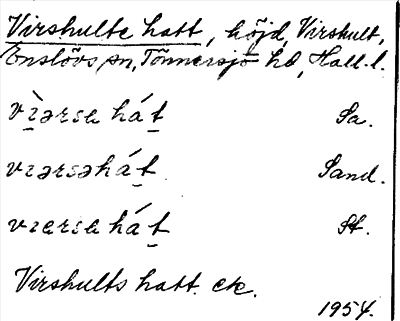 Virshults hatt, höjd, Virshult,
Enslövs sn, Tönnersjö hd, Hall. l.
vì̱ərsa há t̠ Sa.
vıərsəhá t̠ Sand.
vıɛrsa há t̠ St.
Virshults hatt. ek.
1954.